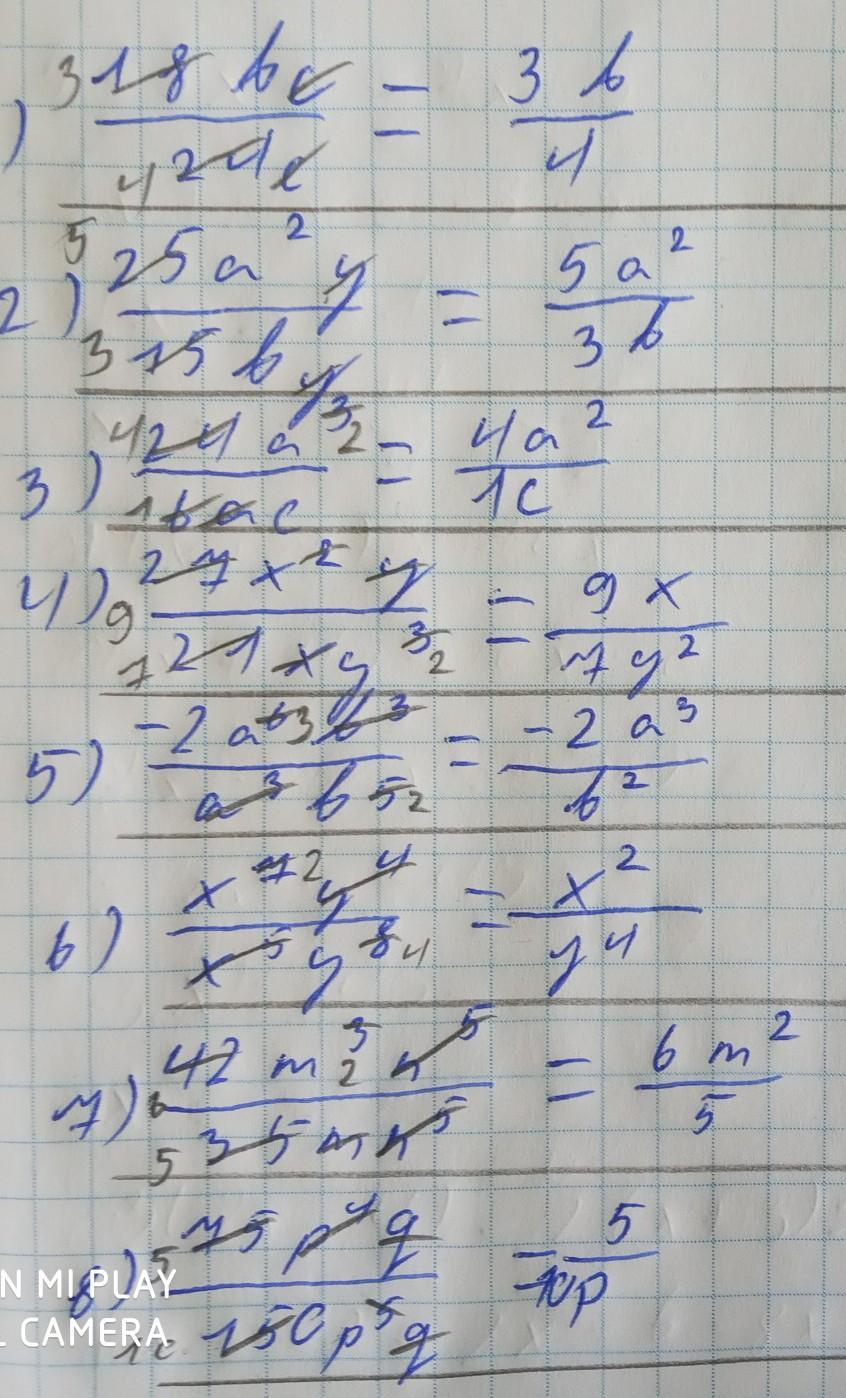 ) 3 18 bc / 4 24c = 3 b / 4
2) 5 25 a² y / 3 15 b y = 5 a² / 3 b
3) 4 24 a³ 2 / 1 6 a c = 4a² / 1c
4) 9 27 x² y / 7 21 x y³ 2 = 9 x / 7 y²
5) -2 a⁶ 3 b³ / a³ b⁵ 2 = -2 a³ / b²
6) x⁷ 2 y⁴ / x⁵ y⁸ 4 = x² / y⁴
7) 6 42 m³ 2 n⁵ / 5 35 m n⁵ = 6 m² / 5
8) 5 75 p⁴ q / 10 150 p⁵ q = 5 / 10p
N MI PLAY
L CAMERA